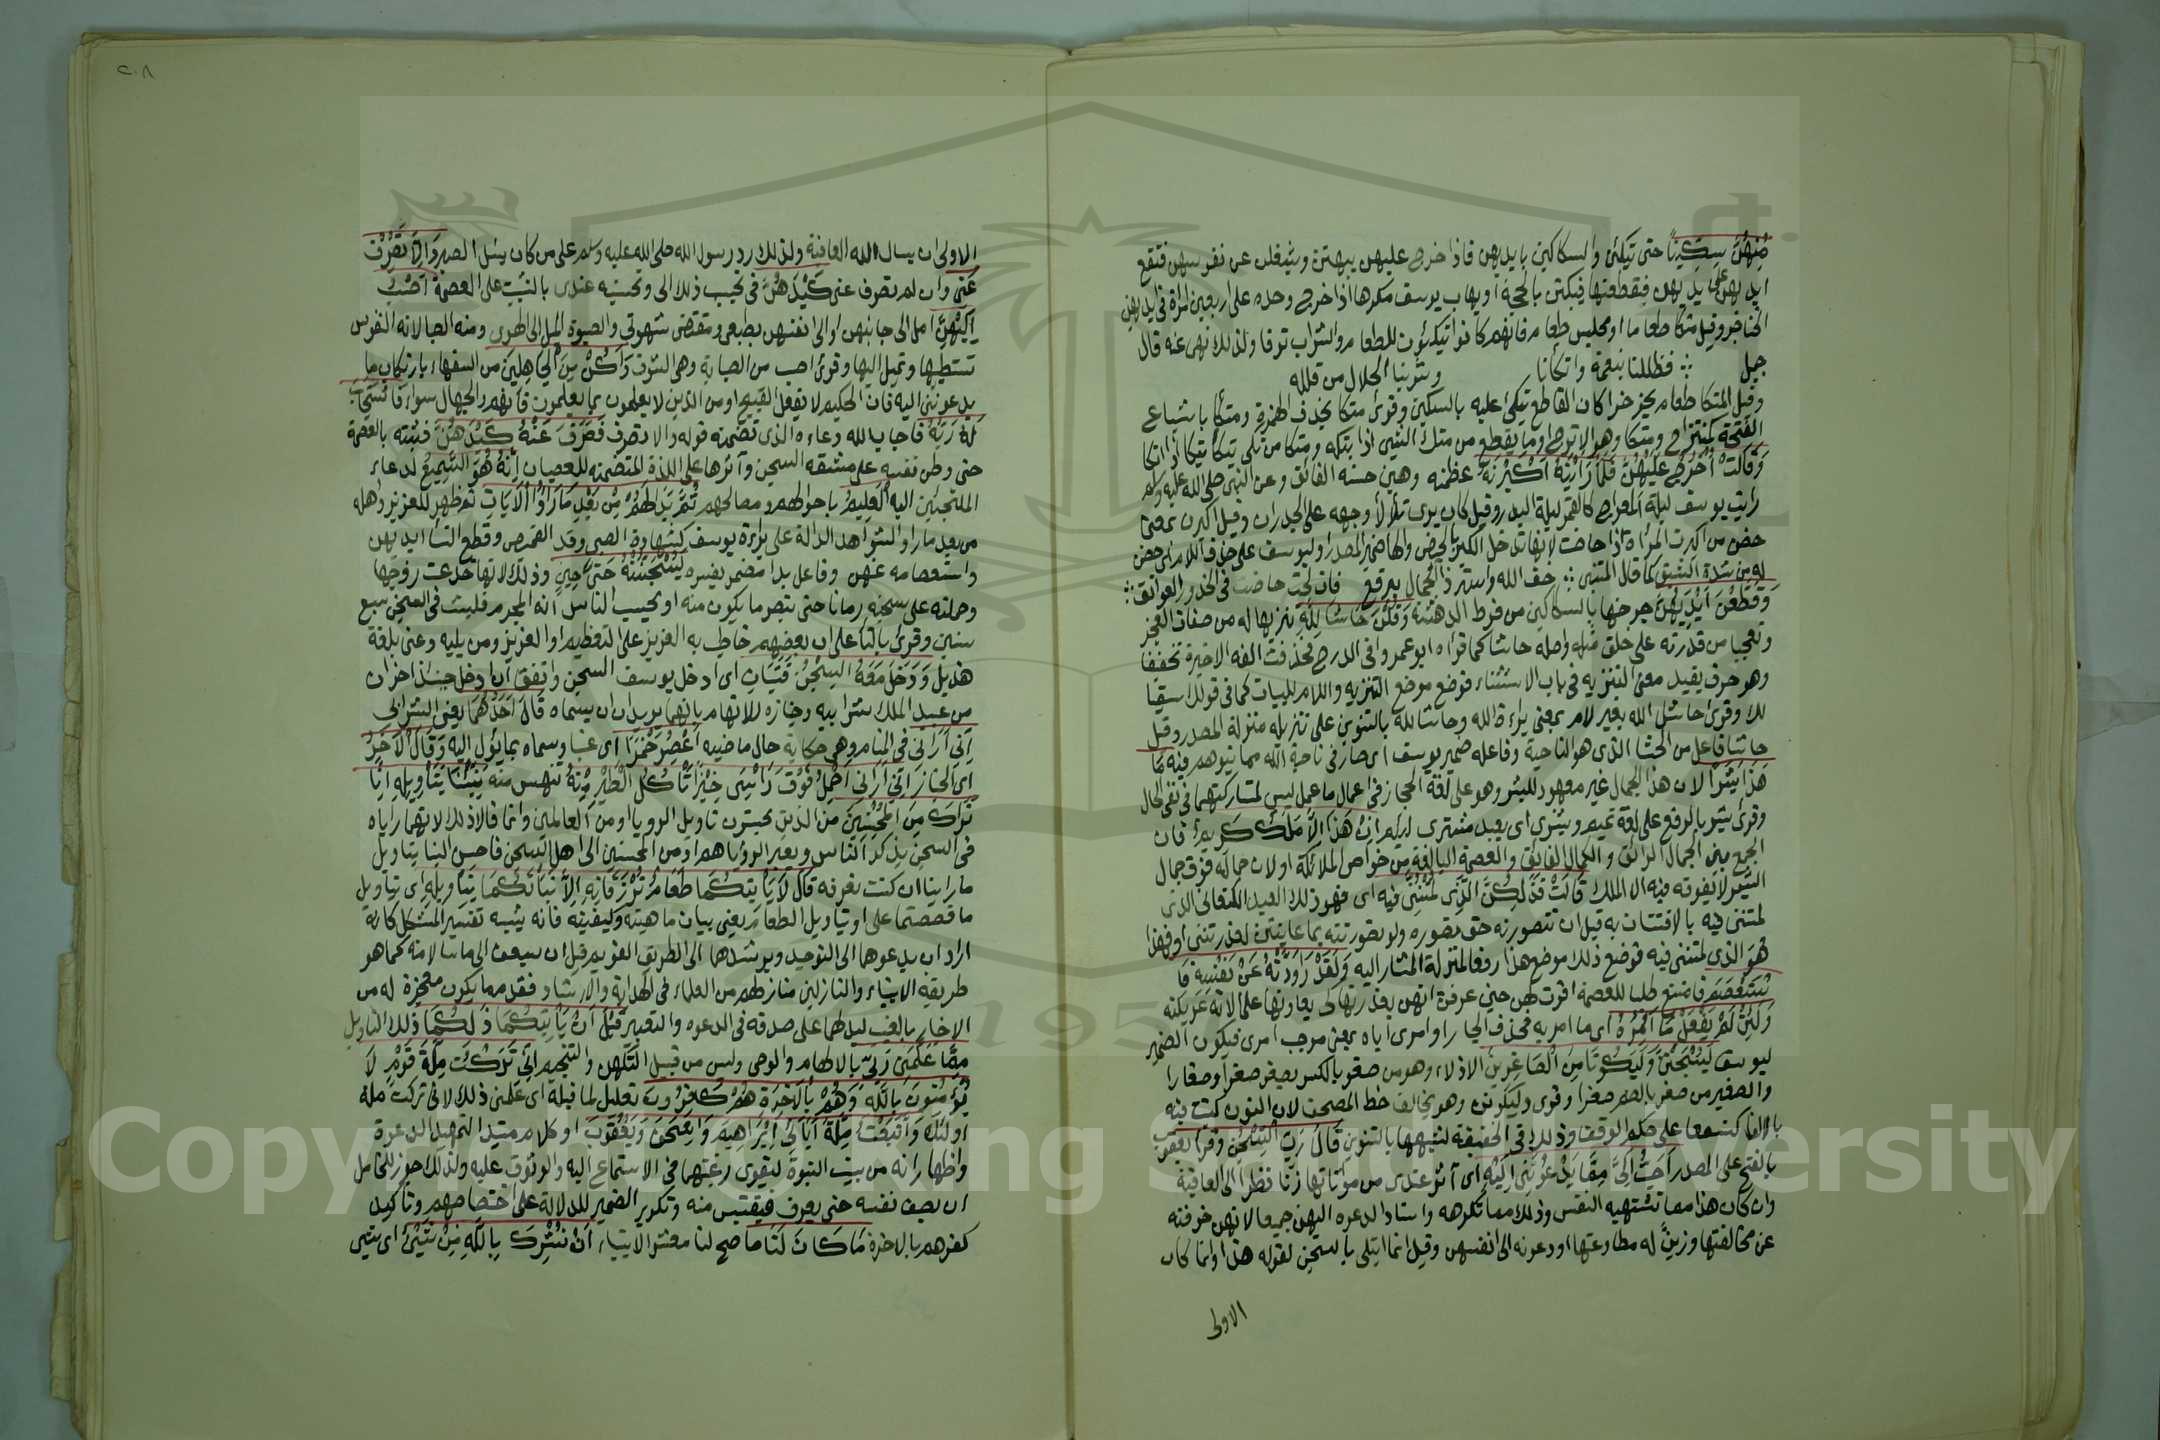 مِنْهُنَّ سِكِّينًا حتى يتكئن والسكاكين بايديهن فاذا خرج عليهن يبهتن ويشغلن عن نفوسهن فتقع
ايديهن على ايديهن فيقطعنها فيبكتن بالحجة او يهاب يوسف مكرها اذا خرج وحده على اربعين امرأة في ايديهن
الخناجر وقيل متكا طعاما او مجلس طعام فانهم كانوا يتكئون للطعام والشراب ترفا ولذلك نهى عنه قال
جميل فظللنا بنعمة واتكأنا وشربنا الحلال من قلله
وقيل المتكا طعام يحز حزا كان القاطع يتكئ عليه بالسكين وقرئ متكا بحذف الهمزة ومتكآ باشباع
الفتحة كمنتزاح ومتكا وهو الاترج او ما يقطع من متك الشئ اذا بتكه ومتكا من تكى يتكا اذا اتكا
وَقَالَتْ اُخْرُجْ عَلَيْهِنَّ فَلَمَّا رَاَيْنَهُ اَكْبَرْنَهُ عظمنه وهبن حسنه الفائق وعن النبي صلى الله عليه وسلم
رايت يوسف ليلة المعراج كالقمر ليلة البدر وقيل كان يرى تلألأ وجهه على الجدران وقيل اكبرن بمعنى
حضن من اكبرت المرأة اذا حاضت لانها تدخل الكبر بالحيض والهاء ضمير المصدر او ليوسف على حذف اللام اي حضن
له من شدة الشبق كما قال المتنبي خف الله واستر ذا الجمال ببرقع فان لحت حاضت في الخدور العواتق
وَقَطَّعْنَ اَيْدِيَهُنَّ جرحنها بالسكاكين من فرط الدهشة وَقُلْنَ حَاشَا لِلّٰهِ تنزيها له من صفات العجز
وتعجبا من قدرته على خلق مثله واصله حاشا كما قراه ابو عمرو في الدرج فحذفت الفه الاخيرة تخفيفا
وهو حرف يفيد معنى التنزيه في باب الاستثناء فوضع موضع التنزيه واللام للبيان كما في قولك سقيا
لك وقرئ حاش الله بغير لام بمعنى براءة الله وحاشا لله بالتنوين على تنزيله منزلة المصدر وقيل
حاشا فاعل من الحشا الذي هو الناحية وفاعله ضمير يوسف اي صار في ناحية الله مما يتوهم فيه مَا
هَذَا بَشَرًا لان هذا الجمال غير معهود للبشر وهو على لغة الحجاز في اعمال ما عمل ليس لمشاركتهما في نفي الحال
وقرئ بشر بالرفع على لغة تميم وبشرى اي بعبد مشترى لئيم اِنْ هَذَا اِلَّا مَلَكٌ كَرِيمٌ فان
الجمع بين الجمال الرائق والكمال الفائق والعصمة البالغة من خواص الملائكة او لان جماله فوق جمال
البشر لا يفوقه فيه الا الملك قَالَتْ فَذَلِكُنَّ الَّذِى لُمْتُنَّنِى فِيهِ اى فهو ذلك العبد الكنعاني الذي
لمتنني فيه بالافتتان به قبل ان تتصورنه حق تصوره ولو تصورتنه بما عاينتن لعذرتنني او فهذا
هو الذي لمتنني فيه فوضع ذلك موضع هذا رفعا لمنزلة المشار اليه وَلَقَدْ رَاوَدْتُهُ عَنْ نَفْسِهِ فَا
سْتَعْصَمَ فامتنع طلبا للعصمة اقرت لهن حين عرفت انهن يعذرنها كي يعاونها على الانة عريكته
وَلَئِنْ لَمْ يَفْعَلْ مَا اٰمُرُهُ اي ما امر به فحذف الجار او امري اياه بمعنى موجب امري فيكون الضمير
ليوسف لَيُسْجَنَنَّ وَلَيَكُونًا مِنَ الصَّاغِرِينَ الاذلاء وهو من صغر بالكسر يصغر صغرا وصغارا
والصغير من صغر بالضم صغرا وقرئ وليكونن وهو يخالف خط المصحف لان النون كتبت فيه
بالالف كنسفعا على حكم الوقف وذلك في الخفيفة لشبهها بالتنوين قَالَ رَبِّ السِّجْنُ وقرا يعقوب
بالفتح على المصدر اَحَبُّ اِلَىَّ مِمَّا يَدْعُونَنِى اِلَيْهِ اى آثر عندي من مؤاتاتها زنا نظرا الى العاقبة
وان كان هذا مما تشتهيه النفس وذلك مما تكرهه واسناد الدعوة اليهن جميعا لانهن خوفنه
عن مخالفتها وزينّ له مطاوعتها او دعونه الى انفسهن وقيل انما ابتلي بالسجن لقوله هذا وانما كان
الاولى
٢٠٨
الاولى ان يسال الله العافية ولذلك رد رسول الله صلى الله عليه وسلم على من كان يسئل الصبر وَاِلَّا تَصْرِفْ
عَنِّى وان لم تصرف عنى كَيْدَهُنَّ فى تحبيب ذلك الى وتحسينه عندى بالتثبيت على العصمة اَصْبُ
اِلَيْهِنَّ امل الى جانبهن او الى انفسهن بطبعي ومقتضى شهوتي والصبوة الميل الى الهوى ومنه الصبا لانه النفوس
تستطيبها وتميل اليها وقرئ اصب من الصبابة وهى الشوق وَاَكُنْ مِنَ الْجَاهِلِينَ من السفهاء بارتكاب ما
يدعونني اليه فان الحكيم لا يفعل القبيح او من الذين لا يعلمون بما يعلمون فانهم والجهال سواء فَاسْتَجَابَ
لَهُ رَبُّهُ فاجاب الله دعاءه الذي تضمنه قوله والا تصرف فَصَرَفَ عَنْهُ كَيْدَهُنَّ فثبته بالعصمة
حتى وطن نفسه على مشقة السجن وآثرها على اللذة المتضمنة للعصيان اِنَّهُ هُوَ السَّمِيعُ لدعاء
الملتجئين اليه الْعَلِيمُ باحوالهم وما يصلحهم ثُمَّ بَدَا لَهُمْ مِنْ بَعْدِ مَا رَاَوُا الْاٰيَاتِ ثم ظهر للعزيز واهله
من بعد ما راوا الشواهد الدالة على براءة يوسف كشهادة الصبي وقد القميص وقطع النساء ايديهن
واستعصامه عنهن وفاعل بدا مضمر يفسره لَيَسْجُنُنَّهُ حَتَّى حِينٍ وذلك لانها خدعت زوجها
وحملته على سجنه زمانا حتى يتبصر ما يكون منه او يحسب الناس انه المجرم فلبث في السجن سبع
سنين وقرئ بالتاء على ان بعضهم خاطب به العزيز على التعظيم او العزيز ومن يليه وعتى بلغة
هذيل وَدَخَلَ مَعَهُ السِّجْنَ فَتَيَانِ اى ادخل يوسف السجن واتفق ان ادخل حينئذ اخران
من عبيد الملك شرابيه وخبازه للاتهام بانهما يريدان ان يسماه قَالَ اَحَدُهُمَا يعنى الشرابي
اِنِّى اَرَانِى فى المنام وهي حكاية حال ماضيه اَعْصِرُ خَمْرًا اى عنبا وسماه بما يؤل اليه وَقَالَ الْاٰخَرُ
اى الخباز اِنِّى اَرَانِى اَحْمِلُ فَوْقَ رَاْسِى خُبْزًا تَاْكُلُ الطَّيْرُ مِنْهُ تنهس منه نَبِّئْنَا بِتَاْوِيلِهِ اِنَّا
نَرَاكَ مِنَ الْمُحْسِنِينَ من الذين يحسنون تاويل الرويا او من العالمين وانما قالا ذلك لانهما راياه
في السجن يذكر الناس ويعبر الرؤياهم او من المحسنين الى اهل السجن فاحسن الينا بتاويل
ما راينا ان كنت تعرفه قَالَ لَا يَاْتِيكُمَا طَعَامٌ تُرْزَقَانِهِ اِلَّا نَبَّاْتُكُمَا بِتَاْوِيلِهِ اى بتاويل
ما قصصتما على او بتاويل الطعام يعنى بيان ماهيته وكيفيته فانه يشبه تفسير المشكل كانه
اراد ان يدعوهما الى التوحيد ويرشدهما الى الطريق القويم قبل ان يسعف الى ما سالا منه كما هو
طريقة الانبياء والنازلين منازلهم من العلماء في الهداية والارشاد فقدم ما يكون معجزة له من
الاخبار بالغيب ليدلهما على صدقه في الدعوه والتعبير قَبْلَ اَنْ يَاْتِيَكُمَا ذَلِكُمَا ذلك التاويل
مِمَّا عَلَّمَنِى رَبِّى بالالهام والوحى وليس من قبيل التكهن والتنجيم اِنِّى تَرَكْتُ مِلَّةَ قَوْمٍ لَا
يُؤْمِنُونَ بِاللّٰهِ وَهُمْ بِالْاٰخِرَةِ هُمْ كَافِرُونَ تعليل لما قبله اى علمنى ذلك لانى تركت ملة
اولئك وَاتَّبَعْتُ مِلَّةَ اٰبَائِى اِبْرَاهِيمَ وَاِسْحَقَ وَيَعْقُوبَ او كلام مبتدا لتمهيد الدعوة
واظهار انه من بيت النبوة ليقوى رغبتهما فى الاستماع اليه والوثوق عليه ولذلك جوز للخامل
ان يصف نفسه حتى يعرف فيقتبس منه وتكرير الضمير للدلالة على اختصاصهم وتاكيد
كفرهم بالاخرة مَا كَانَ لَنَا ما صح لنا معشر الانبياء اَنْ نُشْرِكَ بِاللّٰهِ مِنْ شَىْءٍ اى شئ
Copyright © King Saud University
1957